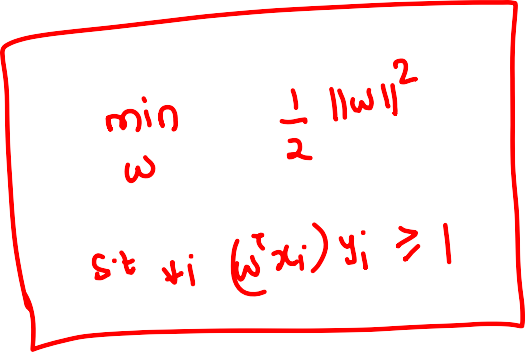 min 1/2 ||w||²
w
s.t ∀i (wᵀxᵢ) yᵢ ≥ 1